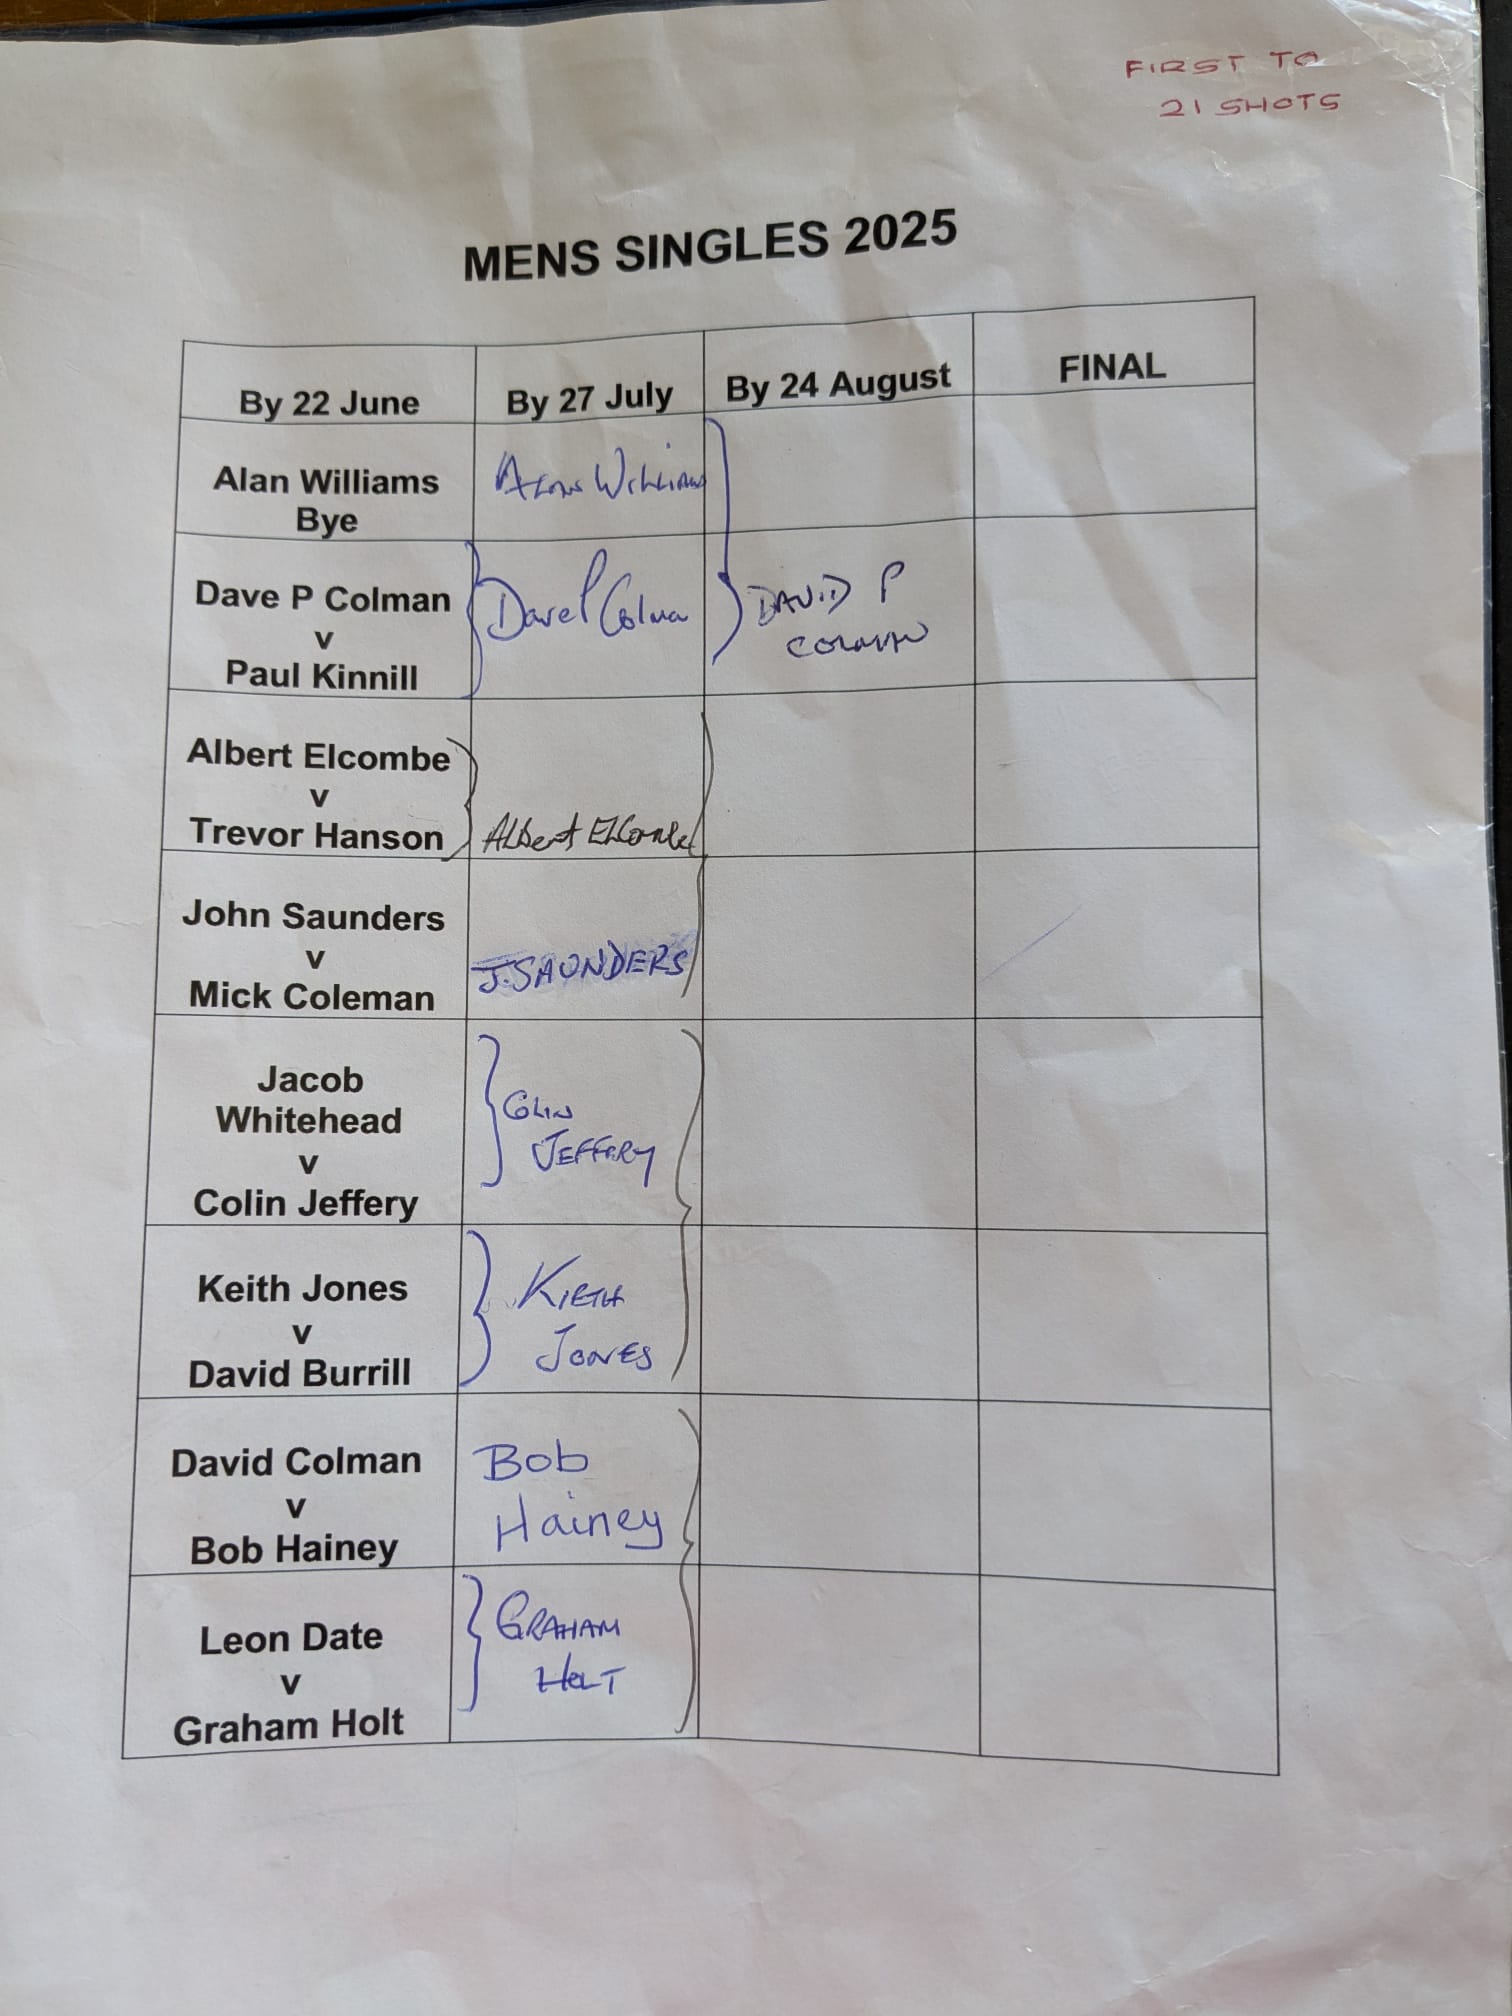 FIRST TO
21 SHOTS
MENS SINGLES 2025
By 22 June
By 27 July
By 24 August
FINAL
Alan Williams
Bye
Alan Williams
Dave P Colman
v
Paul Kinnill
Dave P Colman
DAVID P
COLMAN
Albert Elcombe
v
Trevor Hanson
Albert Elcombe
John Saunders
v
Mick Coleman
J. SAUNDERS
Jacob
Whitehead
v
Colin Jeffery
COLIN
JEFFERY
Keith Jones
v
David Burrill
KIETH
JONES
David Colman
v
Bob Hainey
Bob
Hainey
Leon Date
v
Graham Holt
GRAHAM
HOLT